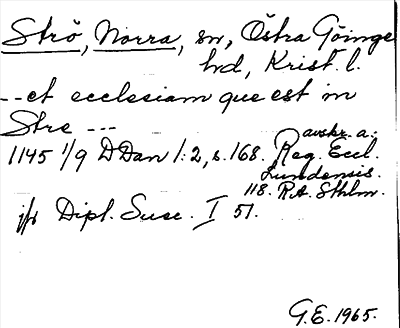 Strö, Norra, sn, Östra Göinge
hd, Krist. l.
--et ecclesiam que est in
Stre ---
1145 1/9 DDan I:2, s. 168. avskr. a:
Reg. Eccl.
Lundensis.
118. R.A. Sthlm.
jfr Dipl. Suec. I 51.
G.E. 1965.